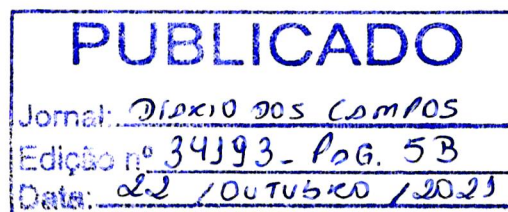 PUBLICADO
Jornal: DIARIO DOS CAMPOS
Edição nº 34193 - PAG. 5B
Data: 22 / OUTUBRO / 2021